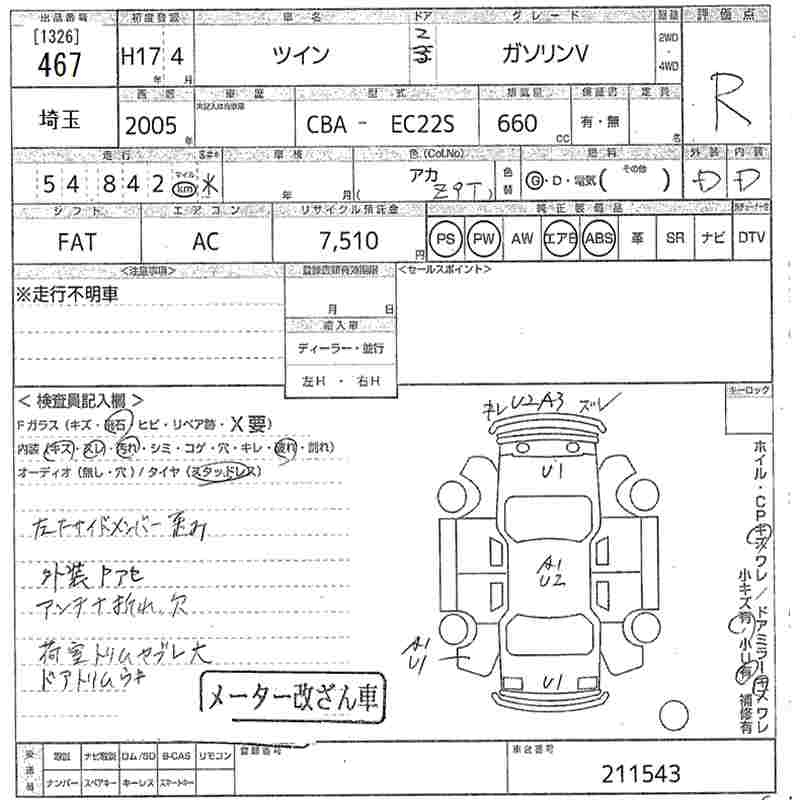 出品番号 初度登録 車名 ドア グレード 駆動 評価点
[1326]
467 H17年 4月 ツイン ガソリンV 2WD・4WD R
埼玉
西暦 車歴 型式 排気量 保証書 定員
2005年 CBA - EC22S 660cc 有・無 名
走行 車検 色(Col.No) 燃料 外装 内装
54 842 マイル km ※ 年 月 アカ (Z9T) 色替 G・D・電気( その他 ) D D
シフト エアコン リサイクル預託金 純正装備品
FAT AC 7,510円 PS PW AW エアB ABS 革 SR ナビ DTV
<注意事項> 登録書類有効期限 <セールスポイント>
※走行不明車
月 日
輸入車
ディーラー・並行
左H ・ 右H
<検査員記入欄> キーロック
キレ U2 A3 ズレ
Fガラス(キズ・飛石・ヒビ・リペア跡・X要)
内装(キズ・スレ・汚れ・シミ・コゲ・穴・キレ・破れ・割れ)
オーディオ(無し・穴)/タイヤ(スタッドレス)
U1
A1
U2
A1
U1
U1
外装下アセ
アンテナ折れ、欠
荷室トリムヤブレ大
ドアトリムウキ
メーター改ざん車
ホイル・CPキズワレ/ドアミラーキズワレ
小キズ有/小U有 補修有
取説 ナビ取説 ロム/SD B-CAS リモコン 登録番号 車台番号
ナンバー スペアキー キーレス スマートキー
211543